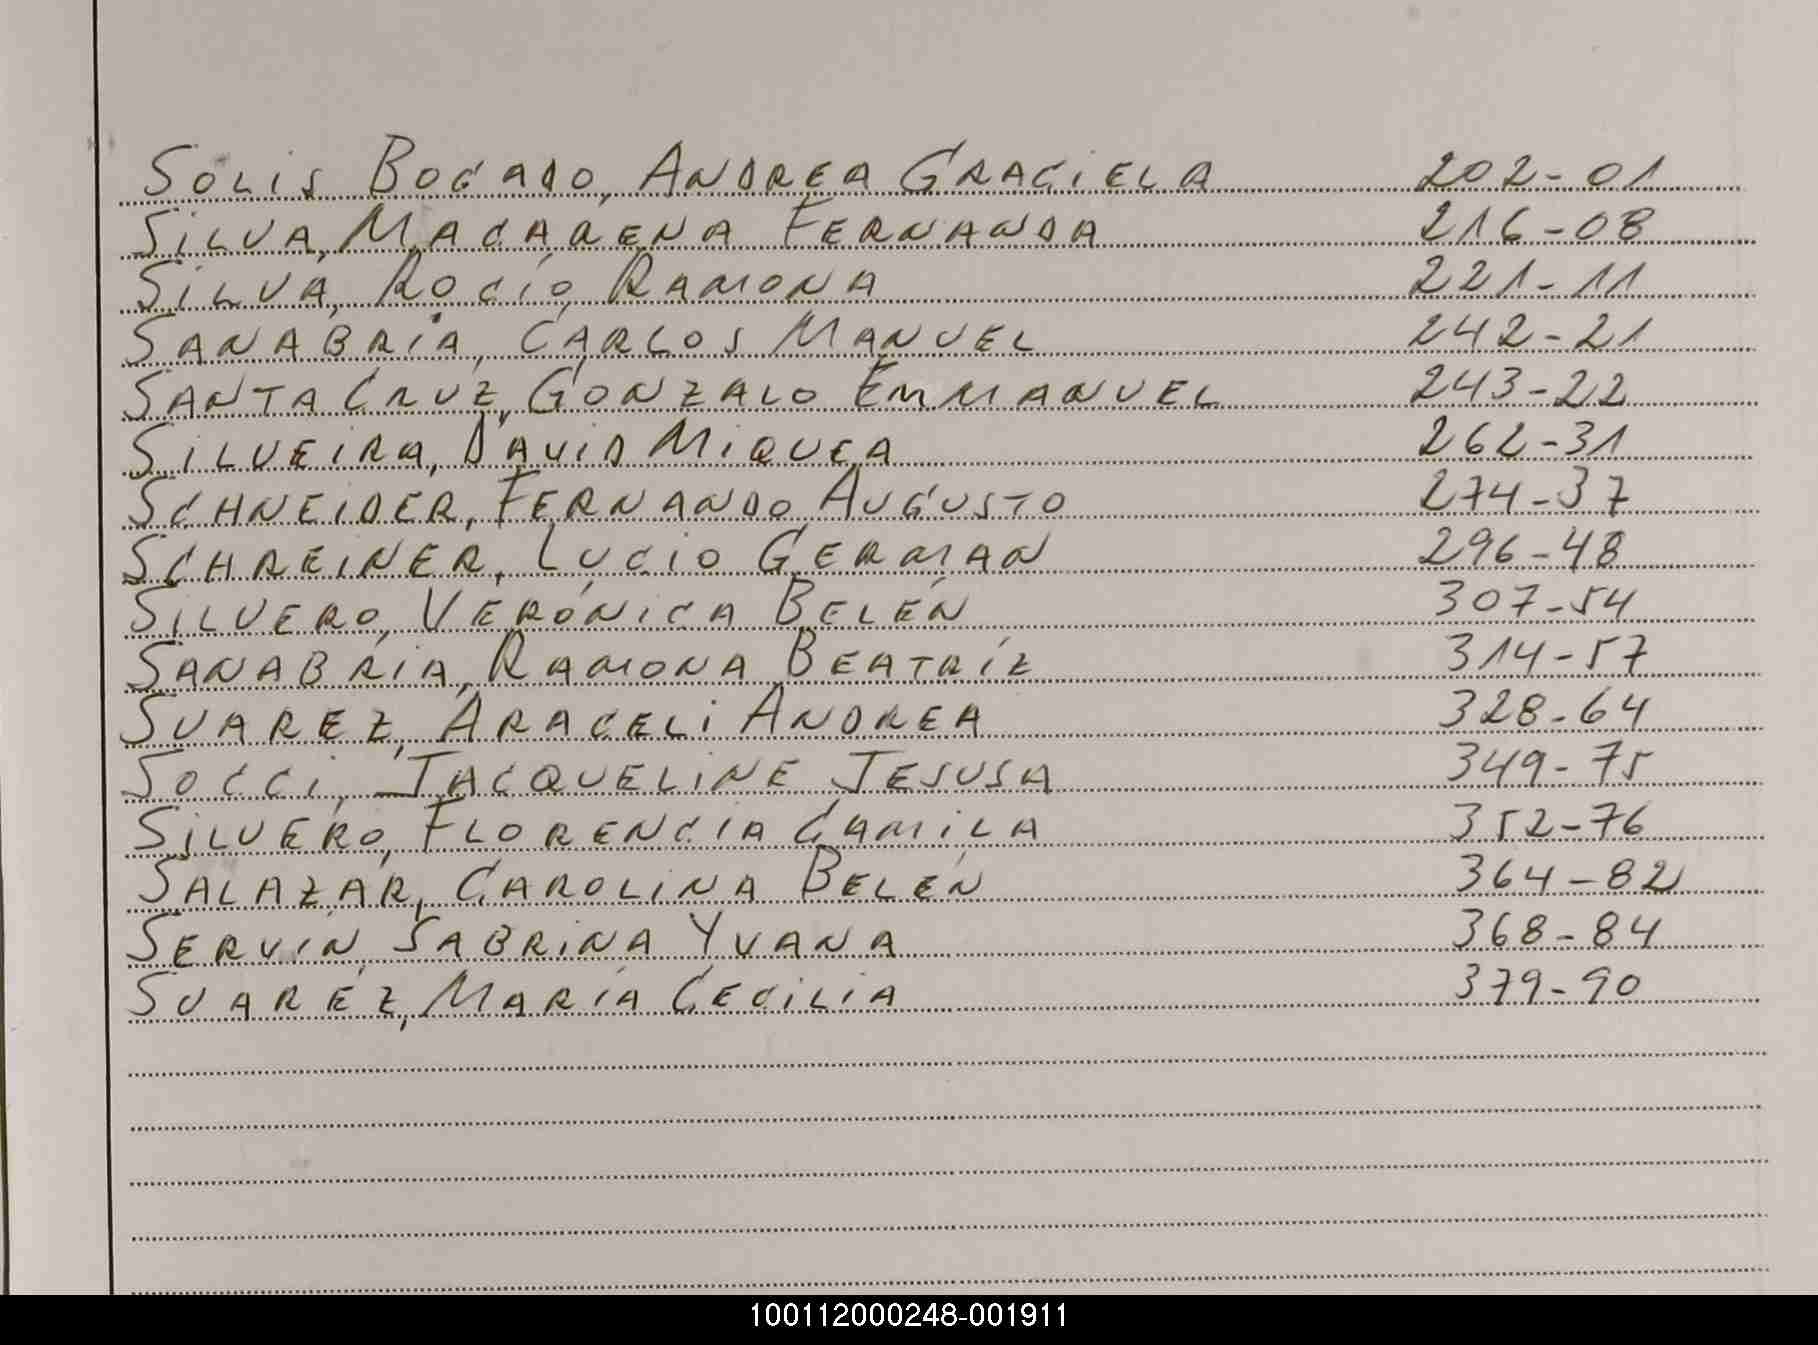 SOLIS BOGADO, ANDREA GRACIELA 202-01
SILVA, MACARENA FERNANDA 216-08
SILVA, ROCÍO RAMONA 221-11
SANABRIA, CARLOS MANUEL 242-21
SANTA CRUZ, GONZALO EMMANUEL 243-22
SILVEIRA, DAVID MIQUEA 262-31
SCHNEIDER, FERNANDO AUGUSTO 274-37
SCHREINER, LUCIO GERMAN 296-48
SILVERO, VERÓNICA BELÉN 307-54
SANABRIA, RAMONA BEATRÍZ 314-57
SUAREZ, ARACELI ANDREA 328-64
SOCCI, JACQUELINE JESUSA 349-75
SILVERO, FLORENCIA CAMILA 352-76
SALAZAR, CAROLINA BELÉN 364-82
SERVIN, SABRINA YVANA 368-84
SUAREZ, MARÍA CECILIA 379-90
100112000248-001911